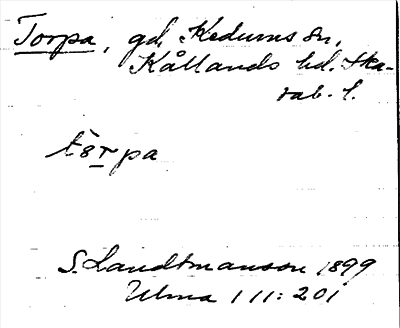 Torpa, gd, Kedums sn,
Kållands hd. Ska-
rab. l.
tòrpa
S. Landtmanson 1899
Ulma 111:201